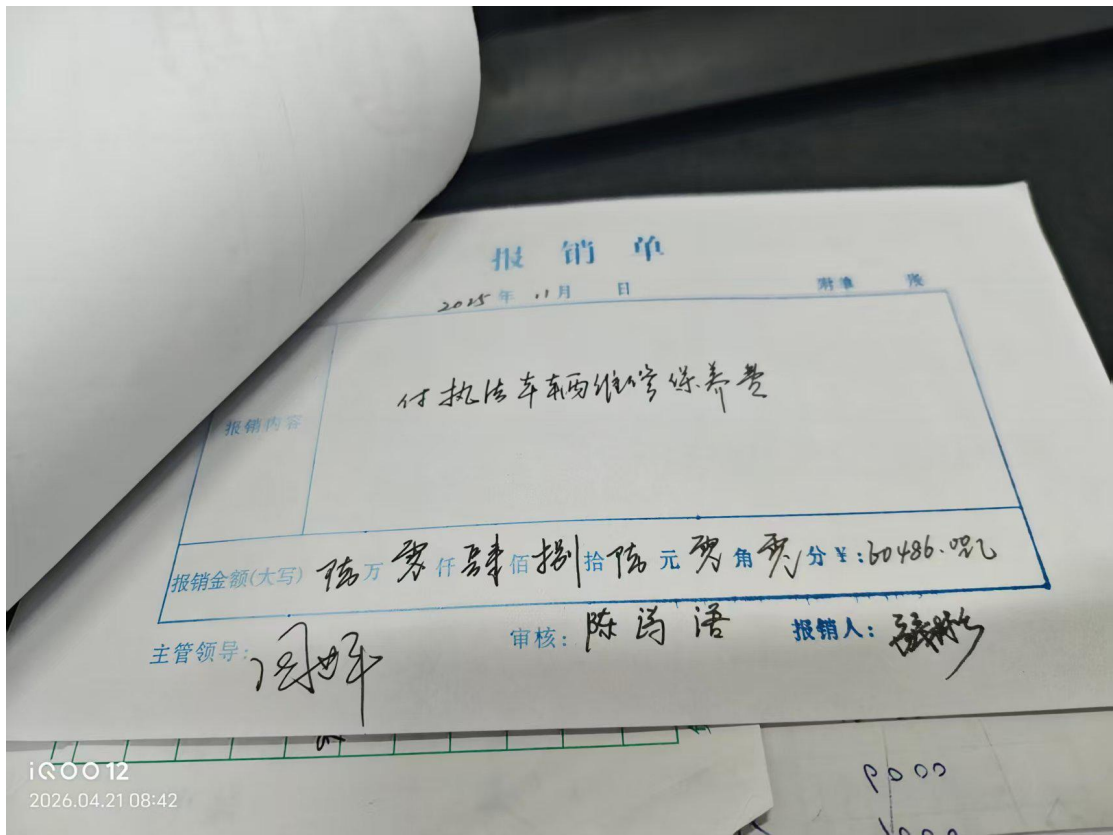 报销单
2025年 11月 日 附单 张
报销内容
付执法车辆维修保养费
报销金额(大写) 陆万零仟肆佰捌拾陆元零角零分 ¥:60486.00元
主管领导:
审核: 陈鸿浯
报销人:
iQOO 12
2026.04.21 08:42